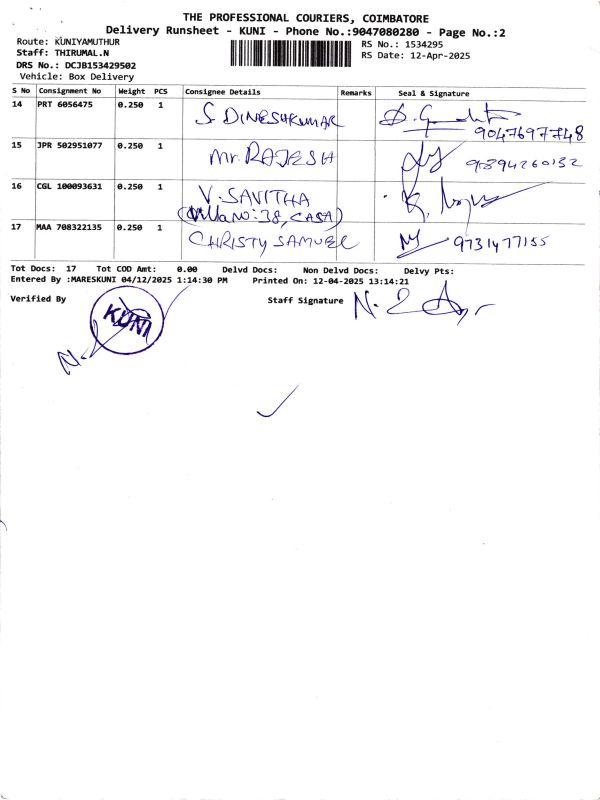 THE PROFESSIONAL COURIERS, COIMBATORE
Delivery Runsheet - KUNI - Phone No.:9047080280 - Page No.:2
Route: KUNIYAMUTHUR
Staff: THIRUMAL.N
DRS No.: DCJB153429502
Vehicle: Box Delivery
RS No.: 1534295
RS Date: 12-Apr-2025
S No Consignment No Weight PCS Consignee Details Remarks Seal & Signature
14 PRT 6056475 0.250 1 S. DINESHKUMAR
9047697748
15 JPR 502951077 0.250 1 Mr. RAJESH
16 CGL 100093631 0.250 1 V. SAVITHA
(Villa no: 38, CASA)
17 MAA 708322135 0.250 1 CHRISTY SAMUEL 9731477155
Tot Docs: 17 Tot COD Amt: 0.00 Delvd Docs: Non Delvd Docs: Delvy Pts:
Entered By :MARESKUNI 04/12/2025 1:14:30 PM Printed On: 12-04-2025 13:14:21
Verified By Staff Signature
KUNI